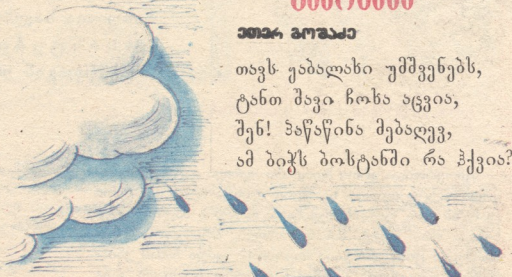 ეთერ გოშაძე
თავს ყაბალახი უმშვენებს,
ტანთ შავი ჩოხა აცვია,
შენ! პაწაწინა მებაღევ,
ამ ბიჭს ბოსტანში რა ჰქვია?